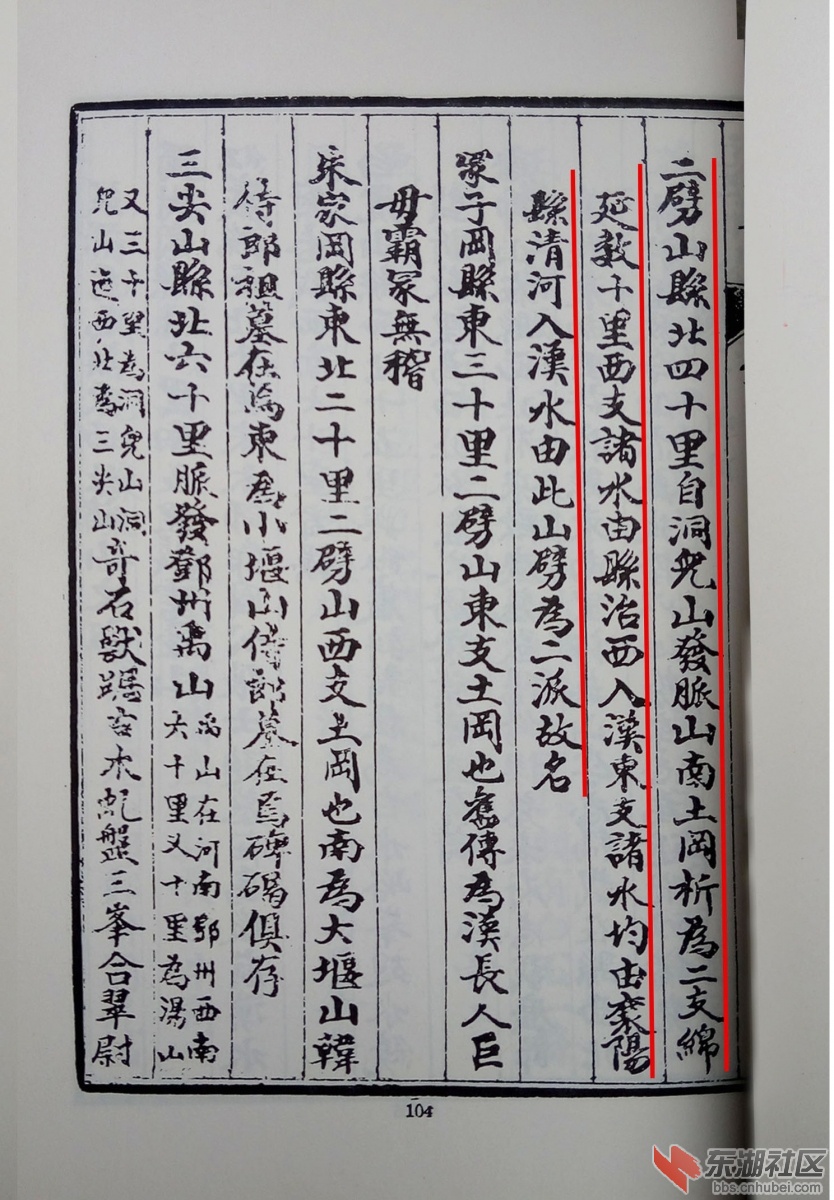 二劈山縣北四十里自洞兒山發脈山南土岡析為二支綿
延数十里西支諸水由縣治西入漢東支諸水均由棗陽
縣清河入漢水由此山劈為二派故名
冢子岡縣東三十里二劈山東支土岡也舊傳為漢長人巨
毋霸冢無稽
朱家岡縣東北二十里二劈山西支土岡也南為大堰山韓
侍郎祖墓在焉東為小堰山侍郎墓在焉碑碣俱存
三尖山縣北六十里脈發鄧州禹山禹山在河南鄧州西南
六十里又十里為湯山
又三十里為洞兒山洞
兒山迤西北為三尖山奇石獸蹲古木虬盤三峯合翠尉
104
东湖社区
bbs.cnhubei.com